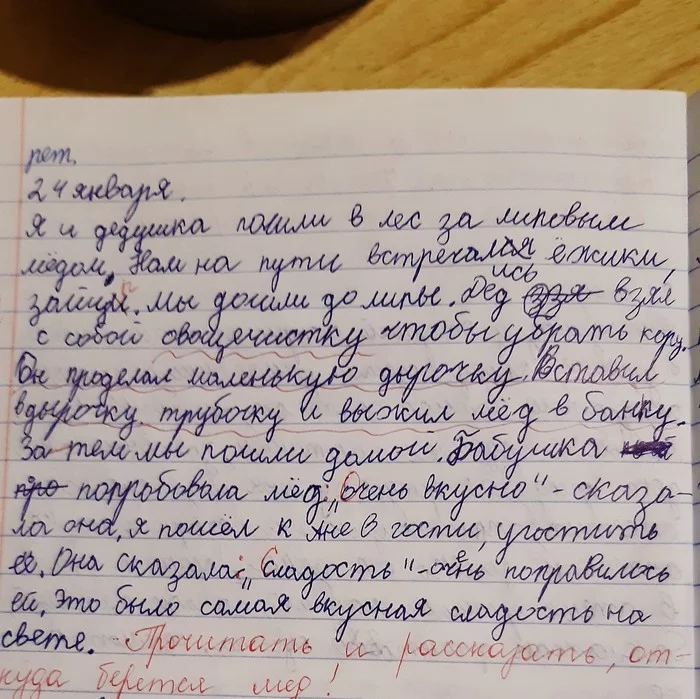 рет.
24 января.
Я и дедушка пошли в лес за липовым
мёдом. Нам на пути встречались ёжики,
зайцы. Мы дошли до липы. Дед взял
с собой овощечистку чтобы убрать кору.
Он проделал маленькую дырочку. Вставил
вдырочку трубочку и выжил мёд в банку.
За тем мы пошли домой. Бабушка
попробовала мёд: „Очень вкусно" - сказа-
ла она, я пошёл к в гости, угостить
её. Она сказала: „Сладость" - очень поправилось
ей. Это было самая вкусная сладость на
свете. Прочитать и рассказать, от-
куда берется мёд!